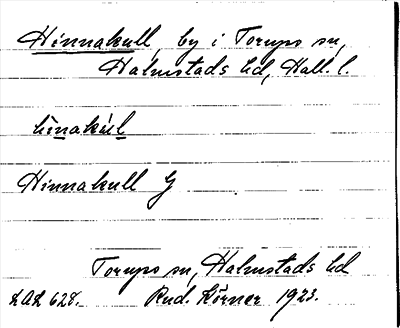 Hinnakull, by i Torups sn,
Halmstads hd, Hall. l.
hìnakúl
Hinnakull G
Torups sn, Halmstads hd
LAL 628. Rud. Körner 1923.